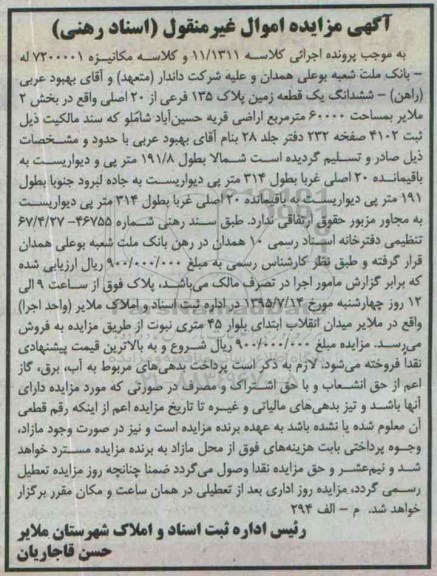 آگهی مزایده اموال غیرمنقول (اسناد رهنی)
به موجب پرونده اجرائی کلاسه ۱۱/۱۳۱۱ و کلاسه مکانیزه ۷۲۰۰۰۰۱ له
– بانک ملت شعبه بوعلی همدان و علیه شرکت داندار (متعهد) و آقای بهبود عربی
(راهن) – ششدانگ یک قطعه زمین پلاک ۱۳۵ فرعی از ۲۰ اصلی واقع در بخش ۲
ملایر بمساحت ۶۰۰۰۰ مترمربع اراضی قریه حسین‌آباد شاملو که سند مالکیت ذیل
ثبت ۴۱۰۲ صفحه ۲۳۲ دفتر جلد ۲۸ بنام آقای بهبود عربی با حدود و مشخصات
ذیل صادر و تسلیم گردیده است شمالا بطول ۱۹۱/۸ متر پی و دیواریست به
باقیمانده ۲۰ اصلی غربا بطول ۳۱۴ متر پی دیواریست به جاده لبرود جنوبا بطول
۱۹۱ متر پی دیواریست به باقیمانده ۲۰ اصلی غربا بطول ۳۱۴ متر پی دیواریست
به مجاور مزبور حقوق ارتفاقی ندارد. طبق سند رهنی شماره ۴۶۷۵۵– ۶۷/۴/۲۷
تنظیمی دفترخانه اسناد رسمی ۱۰ همدان در رهن بانک ملت شعبه بوعلی همدان
قرار گرفته و طبق نظر کارشناس رسمی به مبلغ ۹۰۰/۰۰۰/۰۰۰ ریال ارزیابی شده
که برابر گزارش مامور اجرا در تصرف مالک می‌باشد، پلاک فوق از ساعت ۹ الی
۱۲ روز چهارشنبه مورخ ۱۳۹۵/۷/۱۴ در اداره ثبت اسناد و املاک ملایر (واحد اجرا)
واقع در ملایر میدان انقلاب ابتدای بلوار ۴۵ متری نبوت از طریق مزایده به فروش
می‌رسد. مزایده مبلغ ۹۰۰/۰۰۰/۰۰۰ ریال شروع و به بالاترین قیمت پیشنهادی
نقداً فروخته می‌شود. لازم به ذکر است پرداخت بدهی‌های مربوط به آب، برق، گاز
اعم از حق انشعاب و یا حق اشتراک و مصرف در صورتی که مورد مزایده دارای
آنها باشد و نیز بدهی‌های مالیاتی و غیره تا تاریخ مزایده اعم از اینکه رقم قطعی
آن معلوم شده یا نشده باشد به عهده برنده مزایده است و نیز در صورت وجود مازاد،
وجوه پرداختی بابت هزینه‌های فوق از محل مازاد به برنده مزایده مسترد خواهد
شد و نیم‌عشر و حق مزایده نقدا وصول می‌گردد ضمنا چنانچه روز مزایده تعطیل
رسمی گردد، مزایده روز اداری بعد از تعطیلی در همان ساعت و مکان مقرر برگزار
خواهد شد. م – الف ۲۹۴
رئیس اداره ثبت اسناد و املاک شهرستان ملایر
حسن قاجاریان